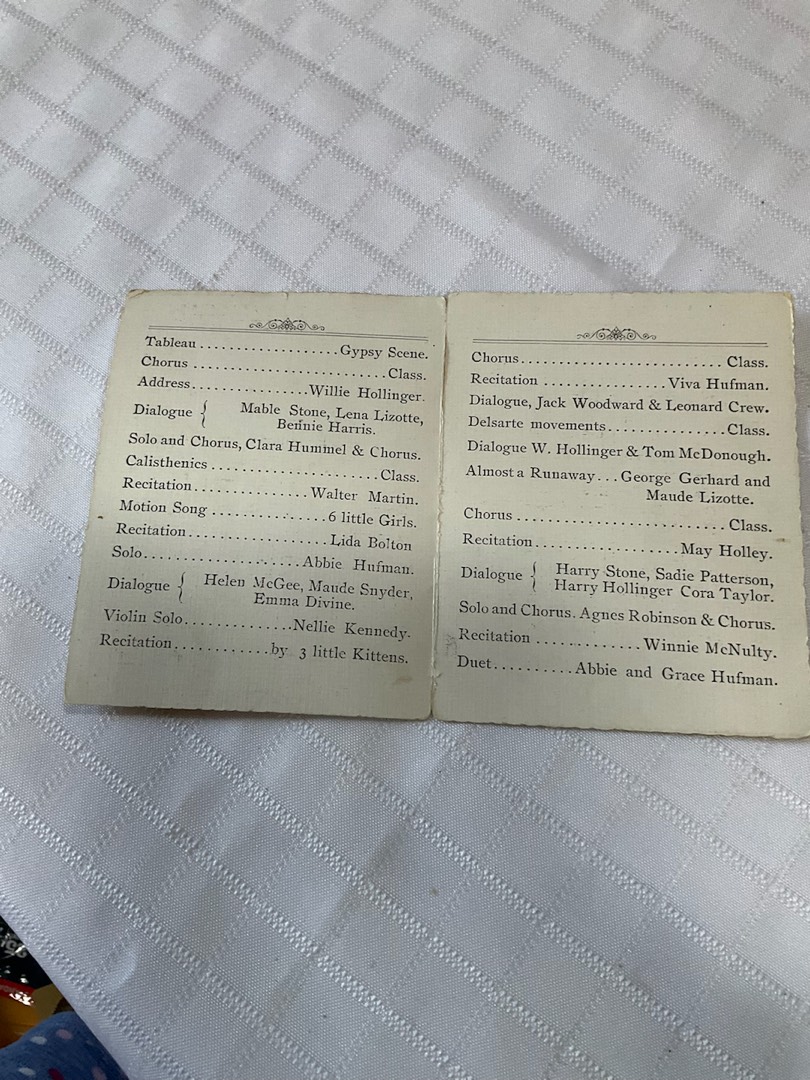 Tableau ...................Gypsy Scene.
Chorus ..........................Class.
Address................Willie Hollinger.
Dialogue { Mable Stone, Lena Lizotte,
Bennie Harris.
Solo and Chorus, Clara Hummel & Chorus.
Calisthenics ......................Class.
Recitation...............Walter Martin.
Motion Song ...............6 little Girls.
Recitation..................Lida Bolton
Solo.....................Abbie Hufman.
Dialogue { Helen McGee, Maude Snyder,
Emma Divine.
Violin Solo..............Nellie Kennedy.
Recitation............by 3 little Kittens.
Chorus.......................... Class.
Recitation ................Viva Hufman.
Dialogue, Jack Woodward & Leonard Crew.
Delsarte movements...............Class.
Dialogue W. Hollinger & Tom McDonough.
Almost a Runaway...George Gerhard and
Maude Lizotte.
Chorus ...........................Class.
Recitation..................May Holley.
Dialogue { Harry Stone, Sadie Patterson,
Harry Hollinger Cora Taylor.
Solo and Chorus. Agnes Robinson & Chorus.
Recitation .............Winnie McNulty.
Duet..........Abbie and Grace Hufman.